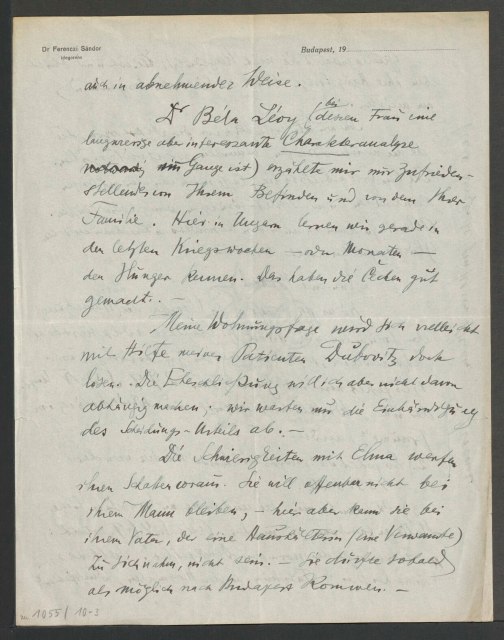 Dr Ferenczi Sándor
idegorvos
Budapest, 19
auch in abnehmender Weise.
Dr Béla Lévy (bei dessen Frau eine
langwierige aber interessante Charakteranalyse
im Gange ist) erzählte mir nur Zufrieden-
stellendes von Ihrem Befinden und von dem Ihrer
Familie. Hier in Ungarn lernen wir gerade in
den letzten Kriegswochen – oder Monaten –
den Hunger kennen. Das haben die Čechen gut
gemacht. –
Meine Wohnungsfrage wird sich vielleicht
mit Hilfe meines Patienten Dubovitz doch
lösen. Die Eheschließung will ich aber nicht davon
abhängig machen; wir warten nur die Einhändigung
des Scheidungs-Urteils ab. –
Die Schwierigkeiten mit Elma werfen
ihren Schatten voraus. Sie will offenbar nicht bei
ihrem Mann bleiben, – hier aber kann sie bei
ihrem Vater, der eine Haushälterin (eine Verwandte)
zu sich nahm, nicht sein. – Sie dürfte sobald
als möglich nach Budapest kommen. –
1055/10-3